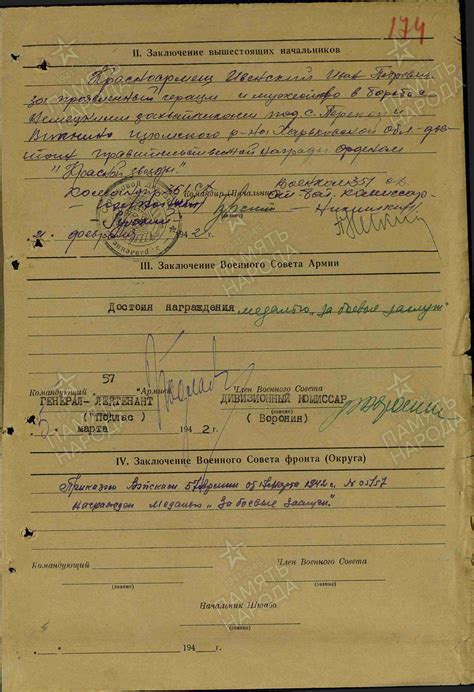 174
II. Заключение вышестоящих начальников
Красноармеец Ивенский Иван Петрович
за проявленный героизм и мужество в борьбе с
Немецкими захватчиками под с.
Изюмского р-на Харьковской обл. до-
стоин правительственной награды орденом
"Красной звезды."
Командир (Начальник)
Военком 351 сд
21 февраля 1942 г.
III. Заключение Военного Совета Армии
Достоин награждения медалью „За боевые заслуги"
Командующий 57 Армией
Член Военного Совета
ГЕНЕРАЛ-ЛЕЙТЕНАНТ
ДИВИЗИОННЫЙ КОМИССАР
(звание)
(Подлас)
(Воронин)
марта 1942 г.
IV. Заключение Военного Совета фронта (Округа)
Приказом Войскам 57 Армии от 17 марта 1942 г. № 05/57
Награжден Медалью „За боевые заслуги".
Командующий
Член Военного Совета
(звание)
(звание)
Начальник Штаба
(звание)
194 г.
ПАМЯТЬ НАРОДА